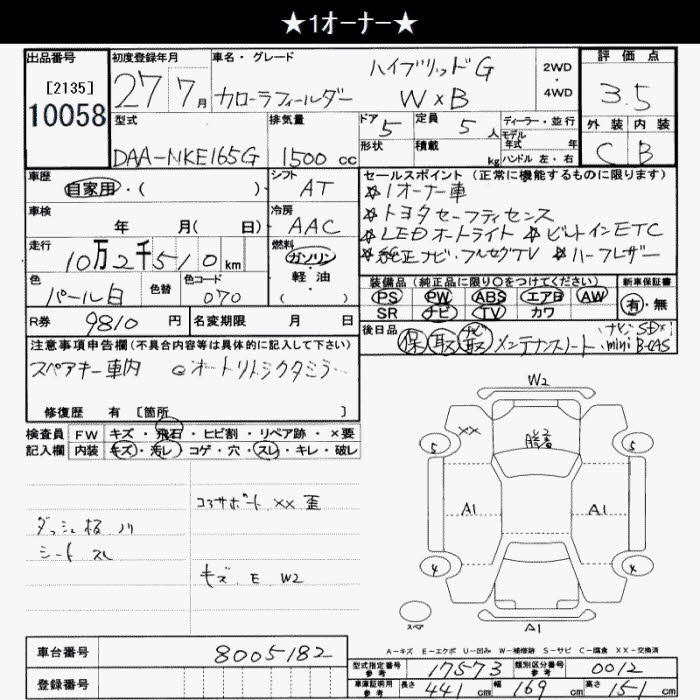 ★1オーナー★
出品番号
[2135]
10058
初度登録年月
27 7月
車名・グレード
ハイブリッドG
カローラフィールダー W×B
2WD
・
4WD
評価点
3.5
外装 内装
C B
型式
DAA-NKE165G
排気量
1500 cc
ドア 5
形状
定員 5人
積載 kg
ディーラー・並行
モデル年式 年
ハンドル 左・右
車歴
自家用・( )
シフト
AT
車検
年 月( 日)
冷房
AAC
走行
10万2千510 km
燃料
ガソリン
・
軽油
( )
色
パール白
色替
色コード
070
R券 9810 円
名変期限 月 日
セールスポイント(正常に機能するものに限ります)
☆1オーナー車
☆トヨタセーフティセンス
☆LEDオートライト ☆ビルトインETC
☆純正ナビ・フルセグTV ☆ハーフレザー
装備品(純正品に限り○をつけてください)
PS PW ABS エアB AW
SR ナビ TV カワ
新車保証書
有・無
後日品
保 取 ナビ取 メンテナンスノート ナビSD×1
mini B-CAS
注意事項申告欄(不具合内容等は具体的に記入して下さい)
スペアキー車内 ◎オートリトラクタミラー
修復歴 有 [箇所 ]
検査員
記入欄
FW キズ・飛石・ヒビ割・リペア跡・×要
内装 キズ・汚レ・コゲ・穴・スレ・キレ・破レ
コアサポート ×× 歪
ダッシュ板 ノリ
シート スレ
キズ E W2
W2
××
5
5
A1
A1
4
4
スペア
A1
A-キズ E-エクボ U-凹み W-補修跡 S-サビ C-腐食 XX-交換済
車台番号
8005182
登録番号
型式指定番号
参考
17573
類別区分番号
参考
0012
車庫証明用
参考
長さ 441 cm
幅 169 cm
高さ 151 cm